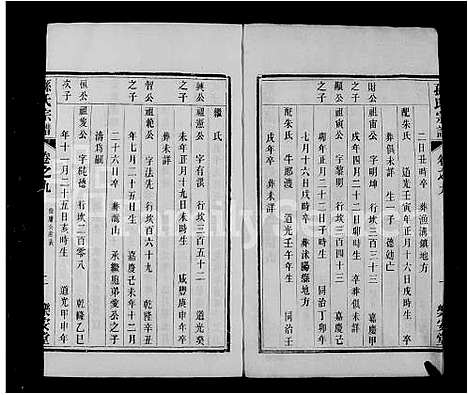 孫氏宗譜
卷之九
樂安堂
二日丑時卒 葬漁溝鎮地方
配朱氏 道光壬寅年正月十六日戌時生 卒
葬俱未詳 生一子 德幼亡
財公 祖甫公 字明坤 行坎三百三十三 嘉慶甲
之子 戌年四月二十二日卯時生 卒葬俱未詳
顯公 祖商公 字黎明 行坎三百三十四 嘉慶己
之二子 卯年正月二十二日子時生 同治丁卯年
六月十六日卒 葬沭陽
配朱氏 牛郎渡 道光壬午年生 同治壬
年七月卒 葬未詳
繼氏
興公 祖憲公 字有淇 行坎三百五十二 道光癸
之子 未年正月十九日未時生 咸豐庚申年
葬未詳
智公 祖範公 字法先 行坎百六十九 乾隆辛丑
之子 年七月二十五日生 嘉慶己未年十二月
二十六日卒 葬嵩山 承繼胞弟愛公之子
濤為嗣
恒公 祖愛公 字純德 行坎二百零八 乾隆乙巳
次子 年十一月二十五日亥時生 道光甲申年
孫氏宗譜
卷之九
二
樂安堂